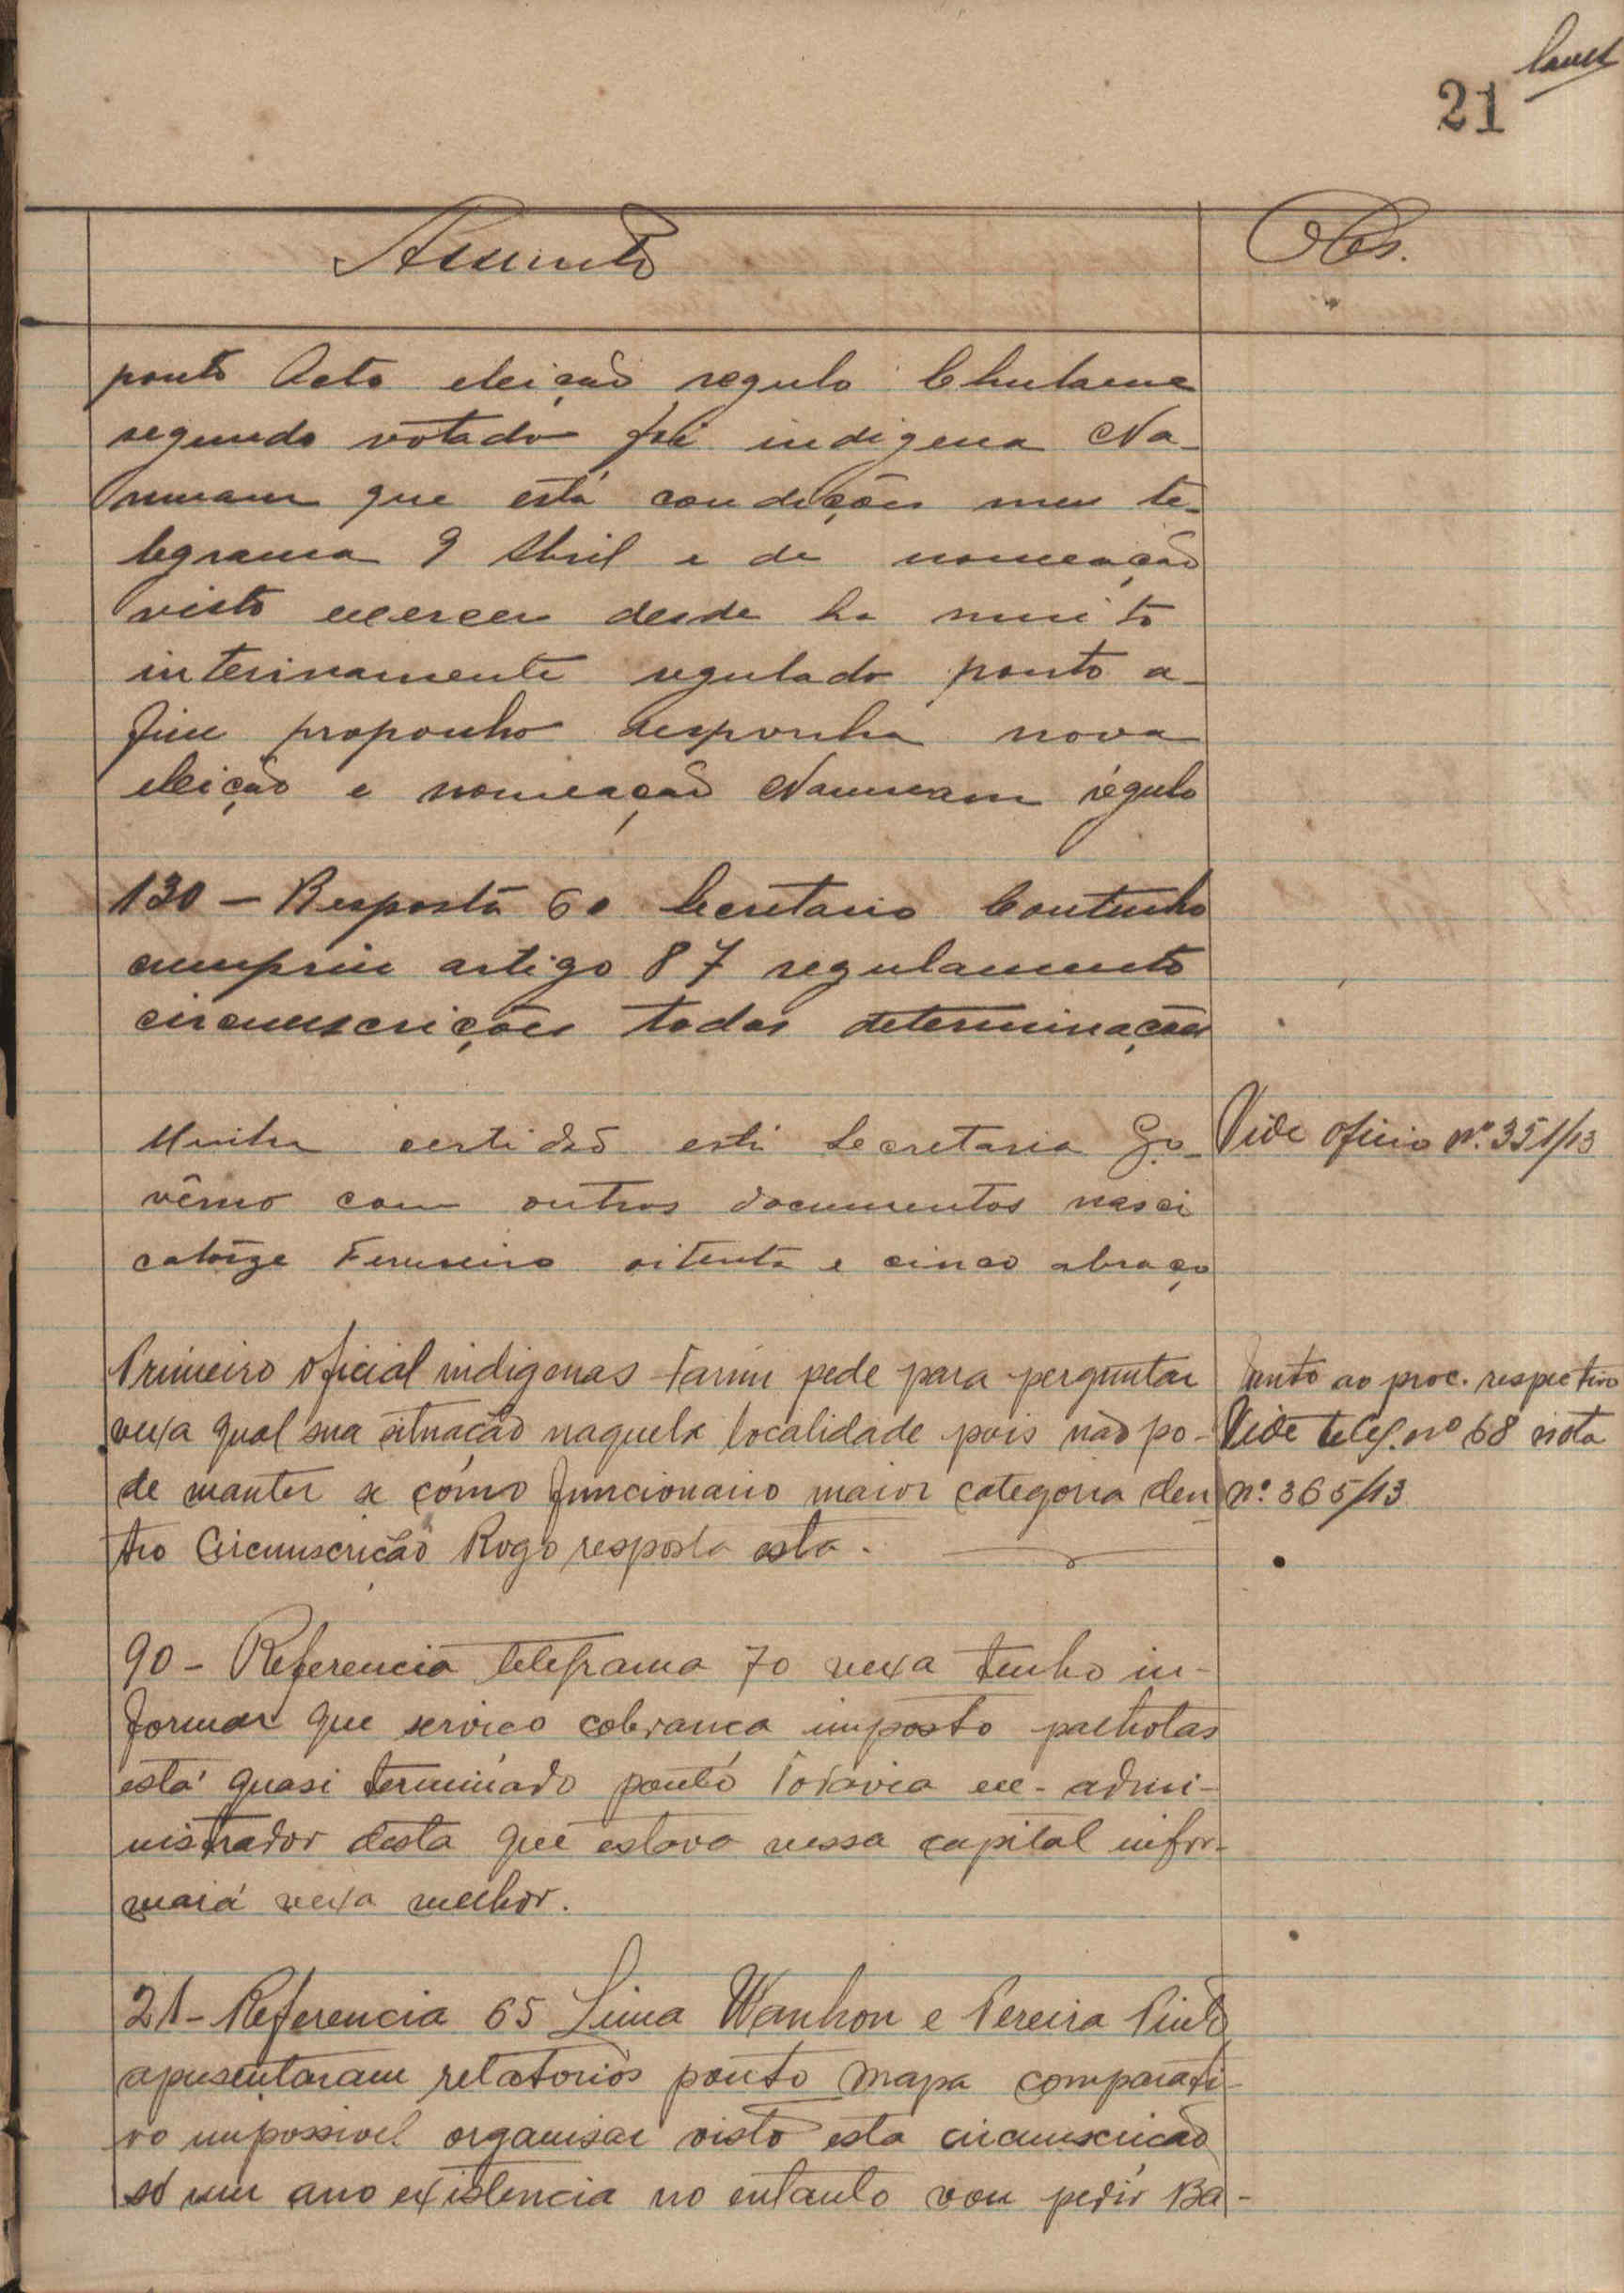 21
Assunto
Obs.
ponto Acto eleição regulo Chulame
segundo votado foi indigena Na-
muam que está condições meu te-
legrama 9 Abril e de nomeação
visto exercer desde ha muito
interinamente regulado ponto a-
fim proponho disponha nova
eleição e nomeação Namuam régulo
130 — Resposta 60 Secretario Coutinho
cumpriu artigo 87 regulamento
circunscrições todas determinações
Minha certidão está Secretaria Go-
vêrno com outros documentos nasci
catorze Fevereiro oitenta e cinco abraço
Vide oficio nº. 351/13
Primeiro oficial indigenas Farim pede para perguntar
vexa qual sua situação naquela localidade pois não po-
de manter se como funcionario maior categoria den
tro Circunscrição Rogo resposta esta.
Junto ao proc. respectivo
Vide teleg. nº 68 nota
nº. 365/13
90 - Referencia telegrama 70 vexa tenho in-
formar que servico cobranca imposto palhotas
está quasi terminado ponto Todavia ex-admi-
nistrador desta que estava nessa capital infor-
mará vexa melhor.
21 - Referencia 65 Lima Wanhon e Pereira Pinto
apresentaram relatorios ponto mapa comparati-
vo impossivel organisar visto esta circunscricão
só um ano existencia no entanto vou pedir Ba-